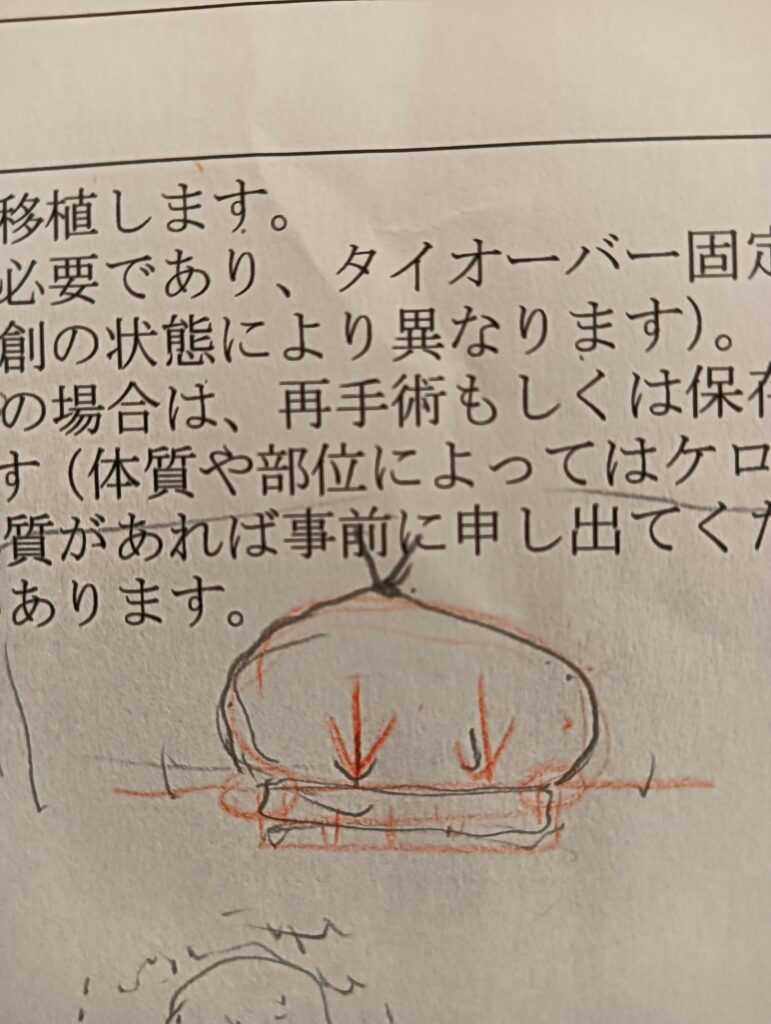 移植します。
必要であり、タイオーバー固定
創の状態により異なります)。
の場合は、再手術もしくは保存
す(体質や部位によってはケロ
質があれば事前に申し出てくだ
あります。